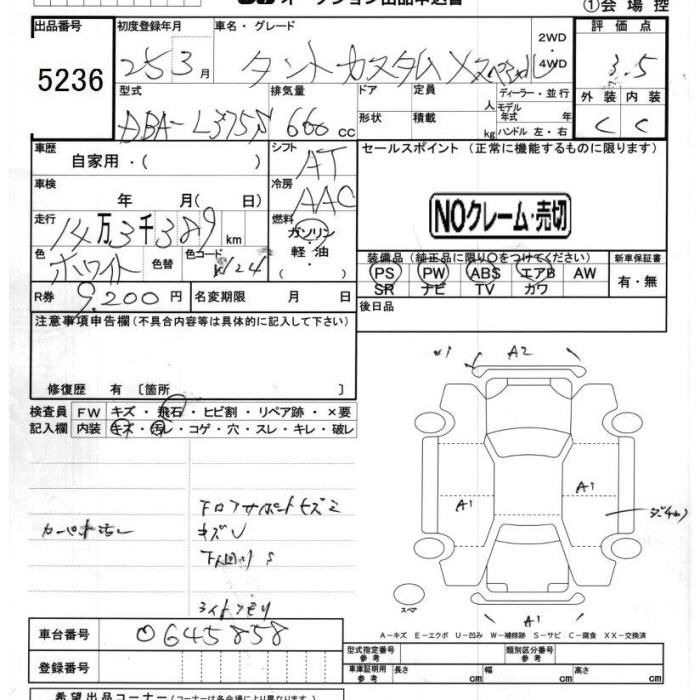 オークション出品申込書
①会場控
出品番号 初度登録年月 車名・グレード 2WD 評価点
5236 25 3月 タントカスタムXスペシャル 4WD 3.5
型式 排気量 ドア 定員 ディーラー・並行 外装 内装
DBA-L375S 660cc 人 モデル年式 年 C C
形状 積載 kg ハンドル 左・右
車歴 シフト セールスポイント (正常に機能するものに限ります)
自家用・( ) AT
車検 冷房
年 月( 日) AAC
NOクレーム・売切
走行 燃料
14万3千389km ガソリン
色 色替 色コード 軽・油
ホワイト W24 ( )
装備品 (純正品に限り○をつけてください) 新車保証書
PS PW ABS エアB AW 有・無
SR ナビ TV カワ
R券 9,200円 名変期限 月 日 後日品
注意事項申告欄(不具合内容等は具体的に記入して下さい)
修復歴 有 〔箇所 〕
検査員 FW キズ・飛石・ヒビ割・リペア跡・×要
記入欄 内装 キズ・汚レ・コゲ・穴・スレ・キレ・破レ
A2
A1 A1
キズU
下回りS
ライトクモリ
スペア
A1
A-キズ E-エクボ U-凹み W-補修跡 S-サビ C-腐食 XX-交換済
車台番号 0645858
型式指定番号 参考 類別区分番号 参考
登録番号 車庫証明用 参考 長さ cm 幅 cm 高さ cm
希望出品コーナー(コーナーは各会場により異なります)